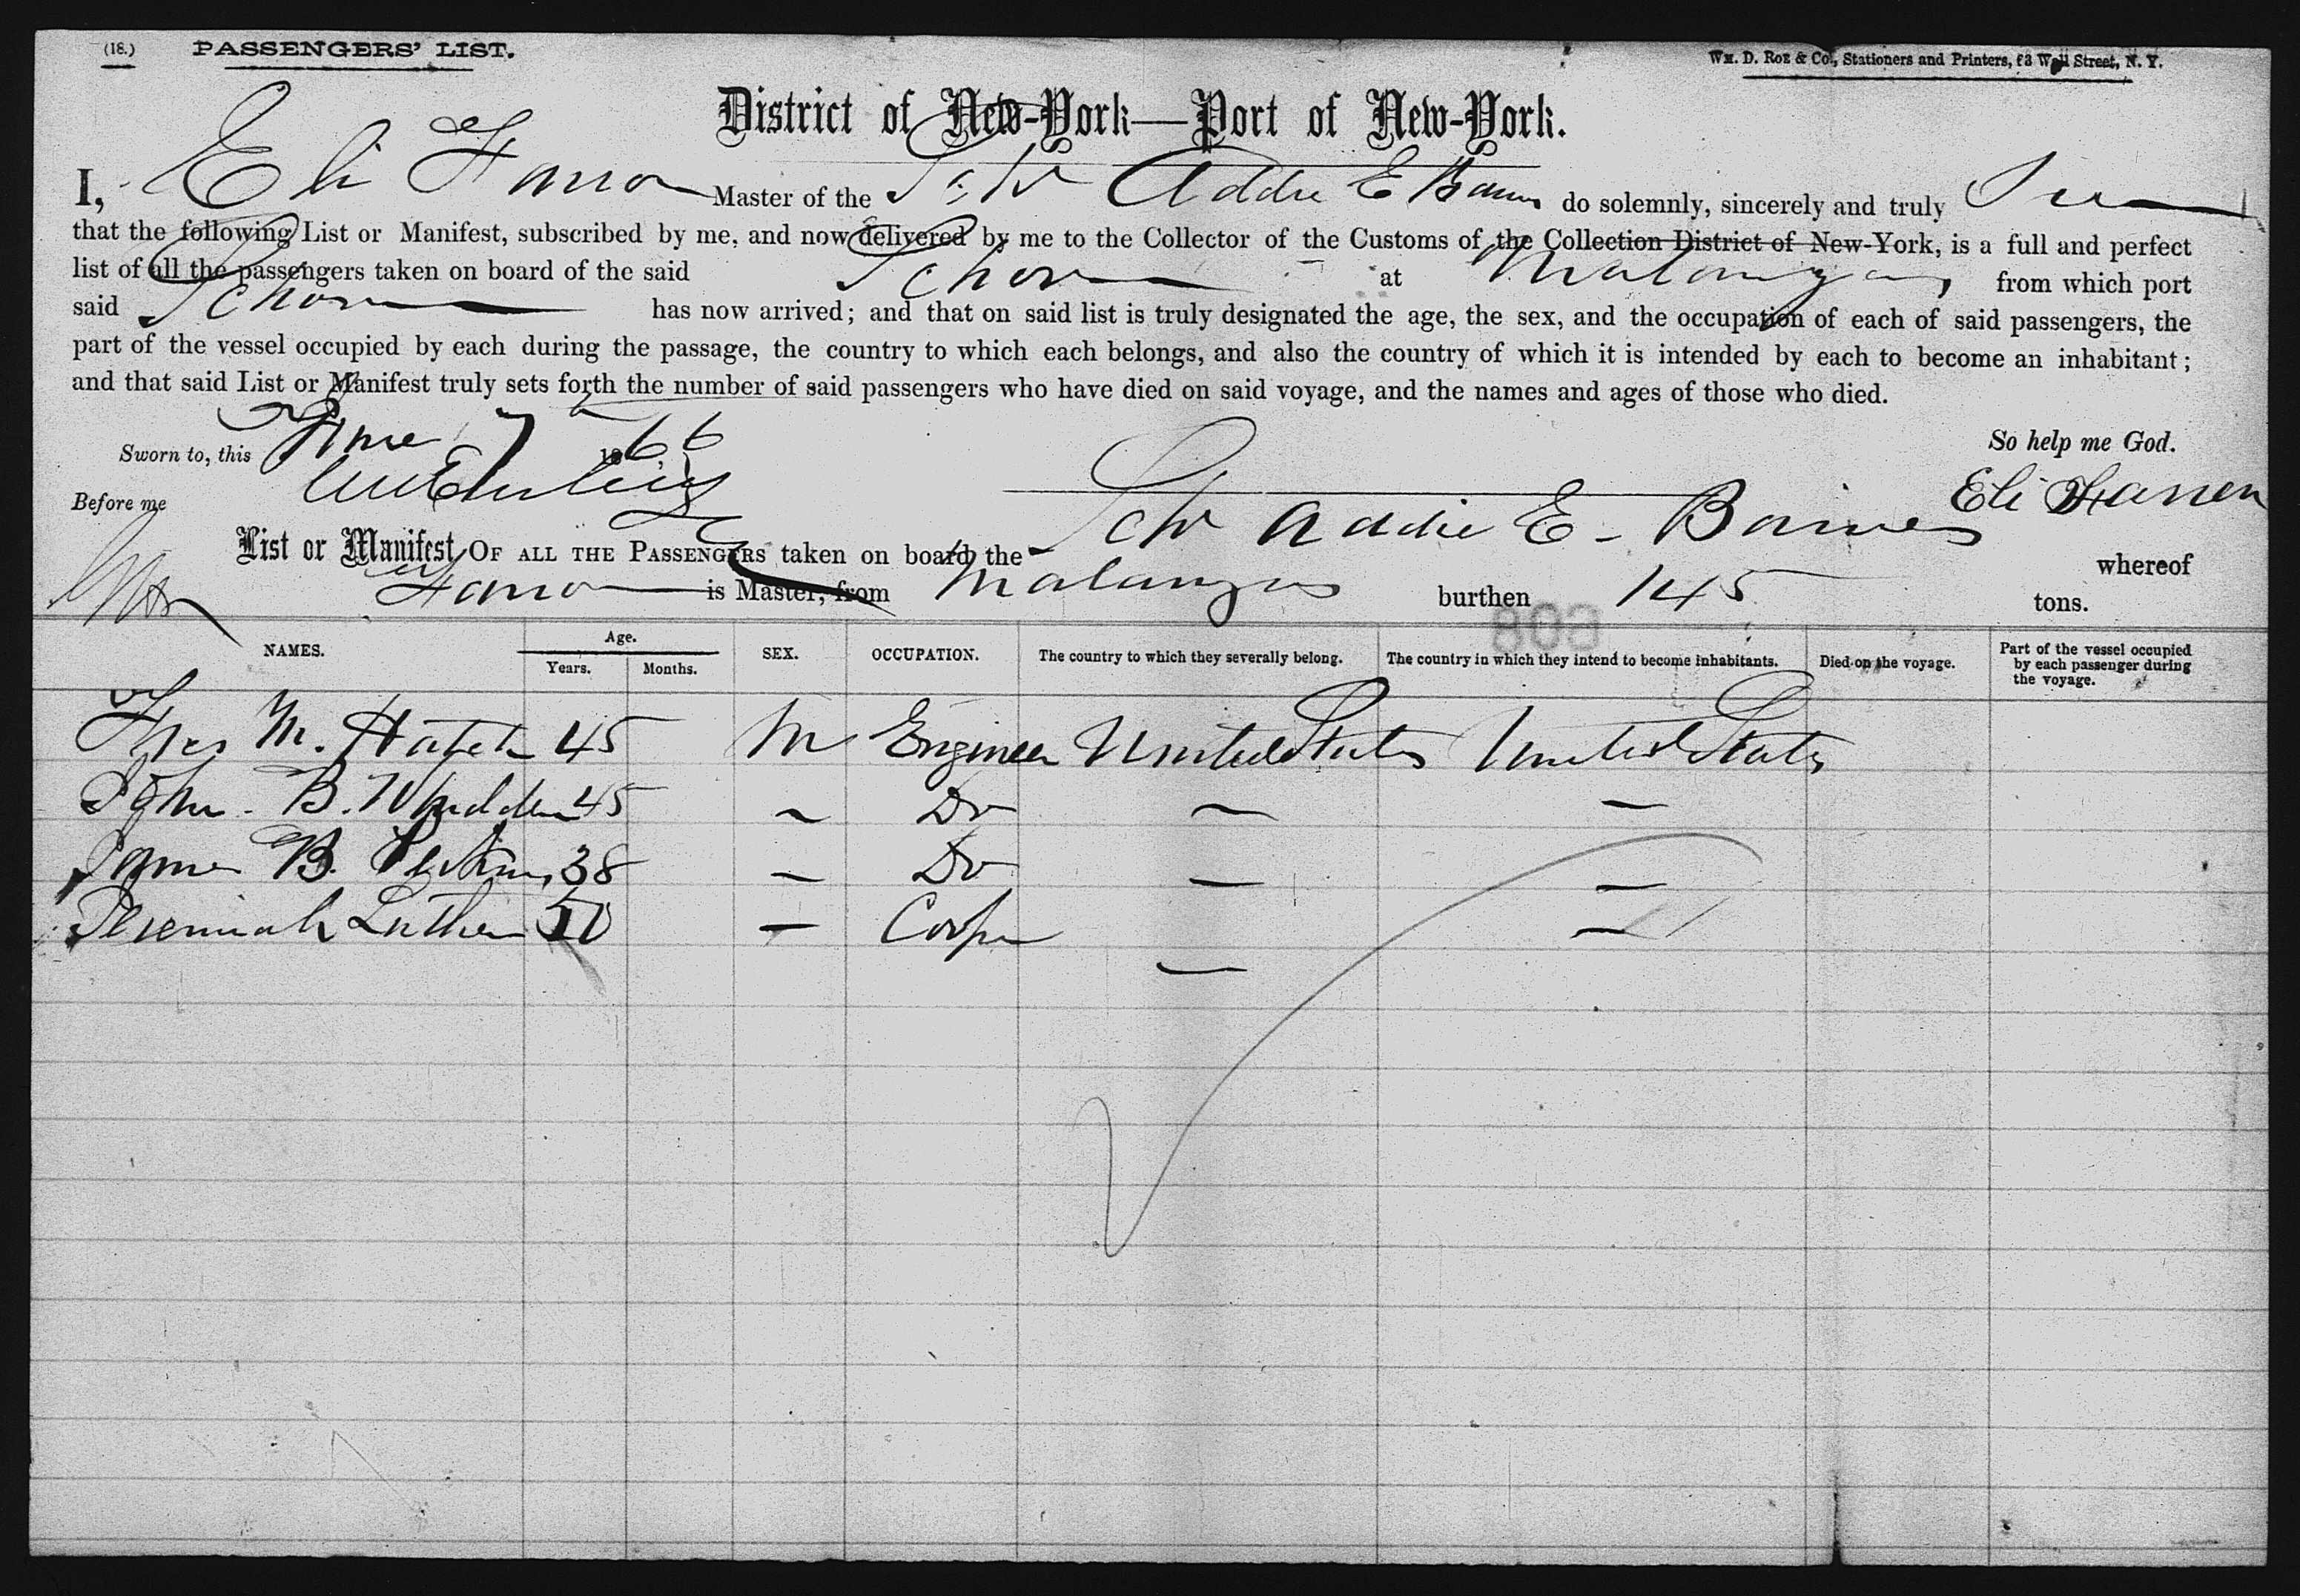 (18.) PASSENGERS' LIST. Wm. D. Roe & Co., Stationers and Printers, 53 Wall Street, N. Y.
District of New-York—Port of New-York.
I, Eli Farron Master of the Schr Addie E Barnes do solemnly, sincerely and truly Swear
that the following List or Manifest, subscribed by me, and now delivered by me to the Collector of the Customs of the Collection District of New-York, is a full and perfect
list of all the passengers taken on board of the said Schor at Matanzas, from which port
said Schor has now arrived; and that on said list is truly designated the age, the sex, and the occupation of each of said passengers, the
part of the vessel occupied by each during the passage, the country to which each belongs, and also the country of which it is intended by each to become an inhabitant;
and that said List or Manifest truly sets forth the number of said passengers who have died on said voyage, and the names and ages of those who died.
Sworn to, this June 7 1866 So help me God.
Before me Eli Farren
List or Manifest OF ALL THE PASSENGERS taken on board the Schr Addie E. Barnes whereof
Farron is Master, from Matanzas burthen 145 tons.
808
NAMES. Age. Years. Months. SEX. OCCUPATION. The country to which they severally belong. The country in which they intend to become inhabitants. Died on the voyage. Part of the vessel occupied by each passenger during the voyage.
Thos M. Hatch 45 M Engineer United States United States
John B. Whidden 45 ~ Do ~ —
James B. Perkins 38 — Do — —
Jeremiah Luther 50 — Cooper — —